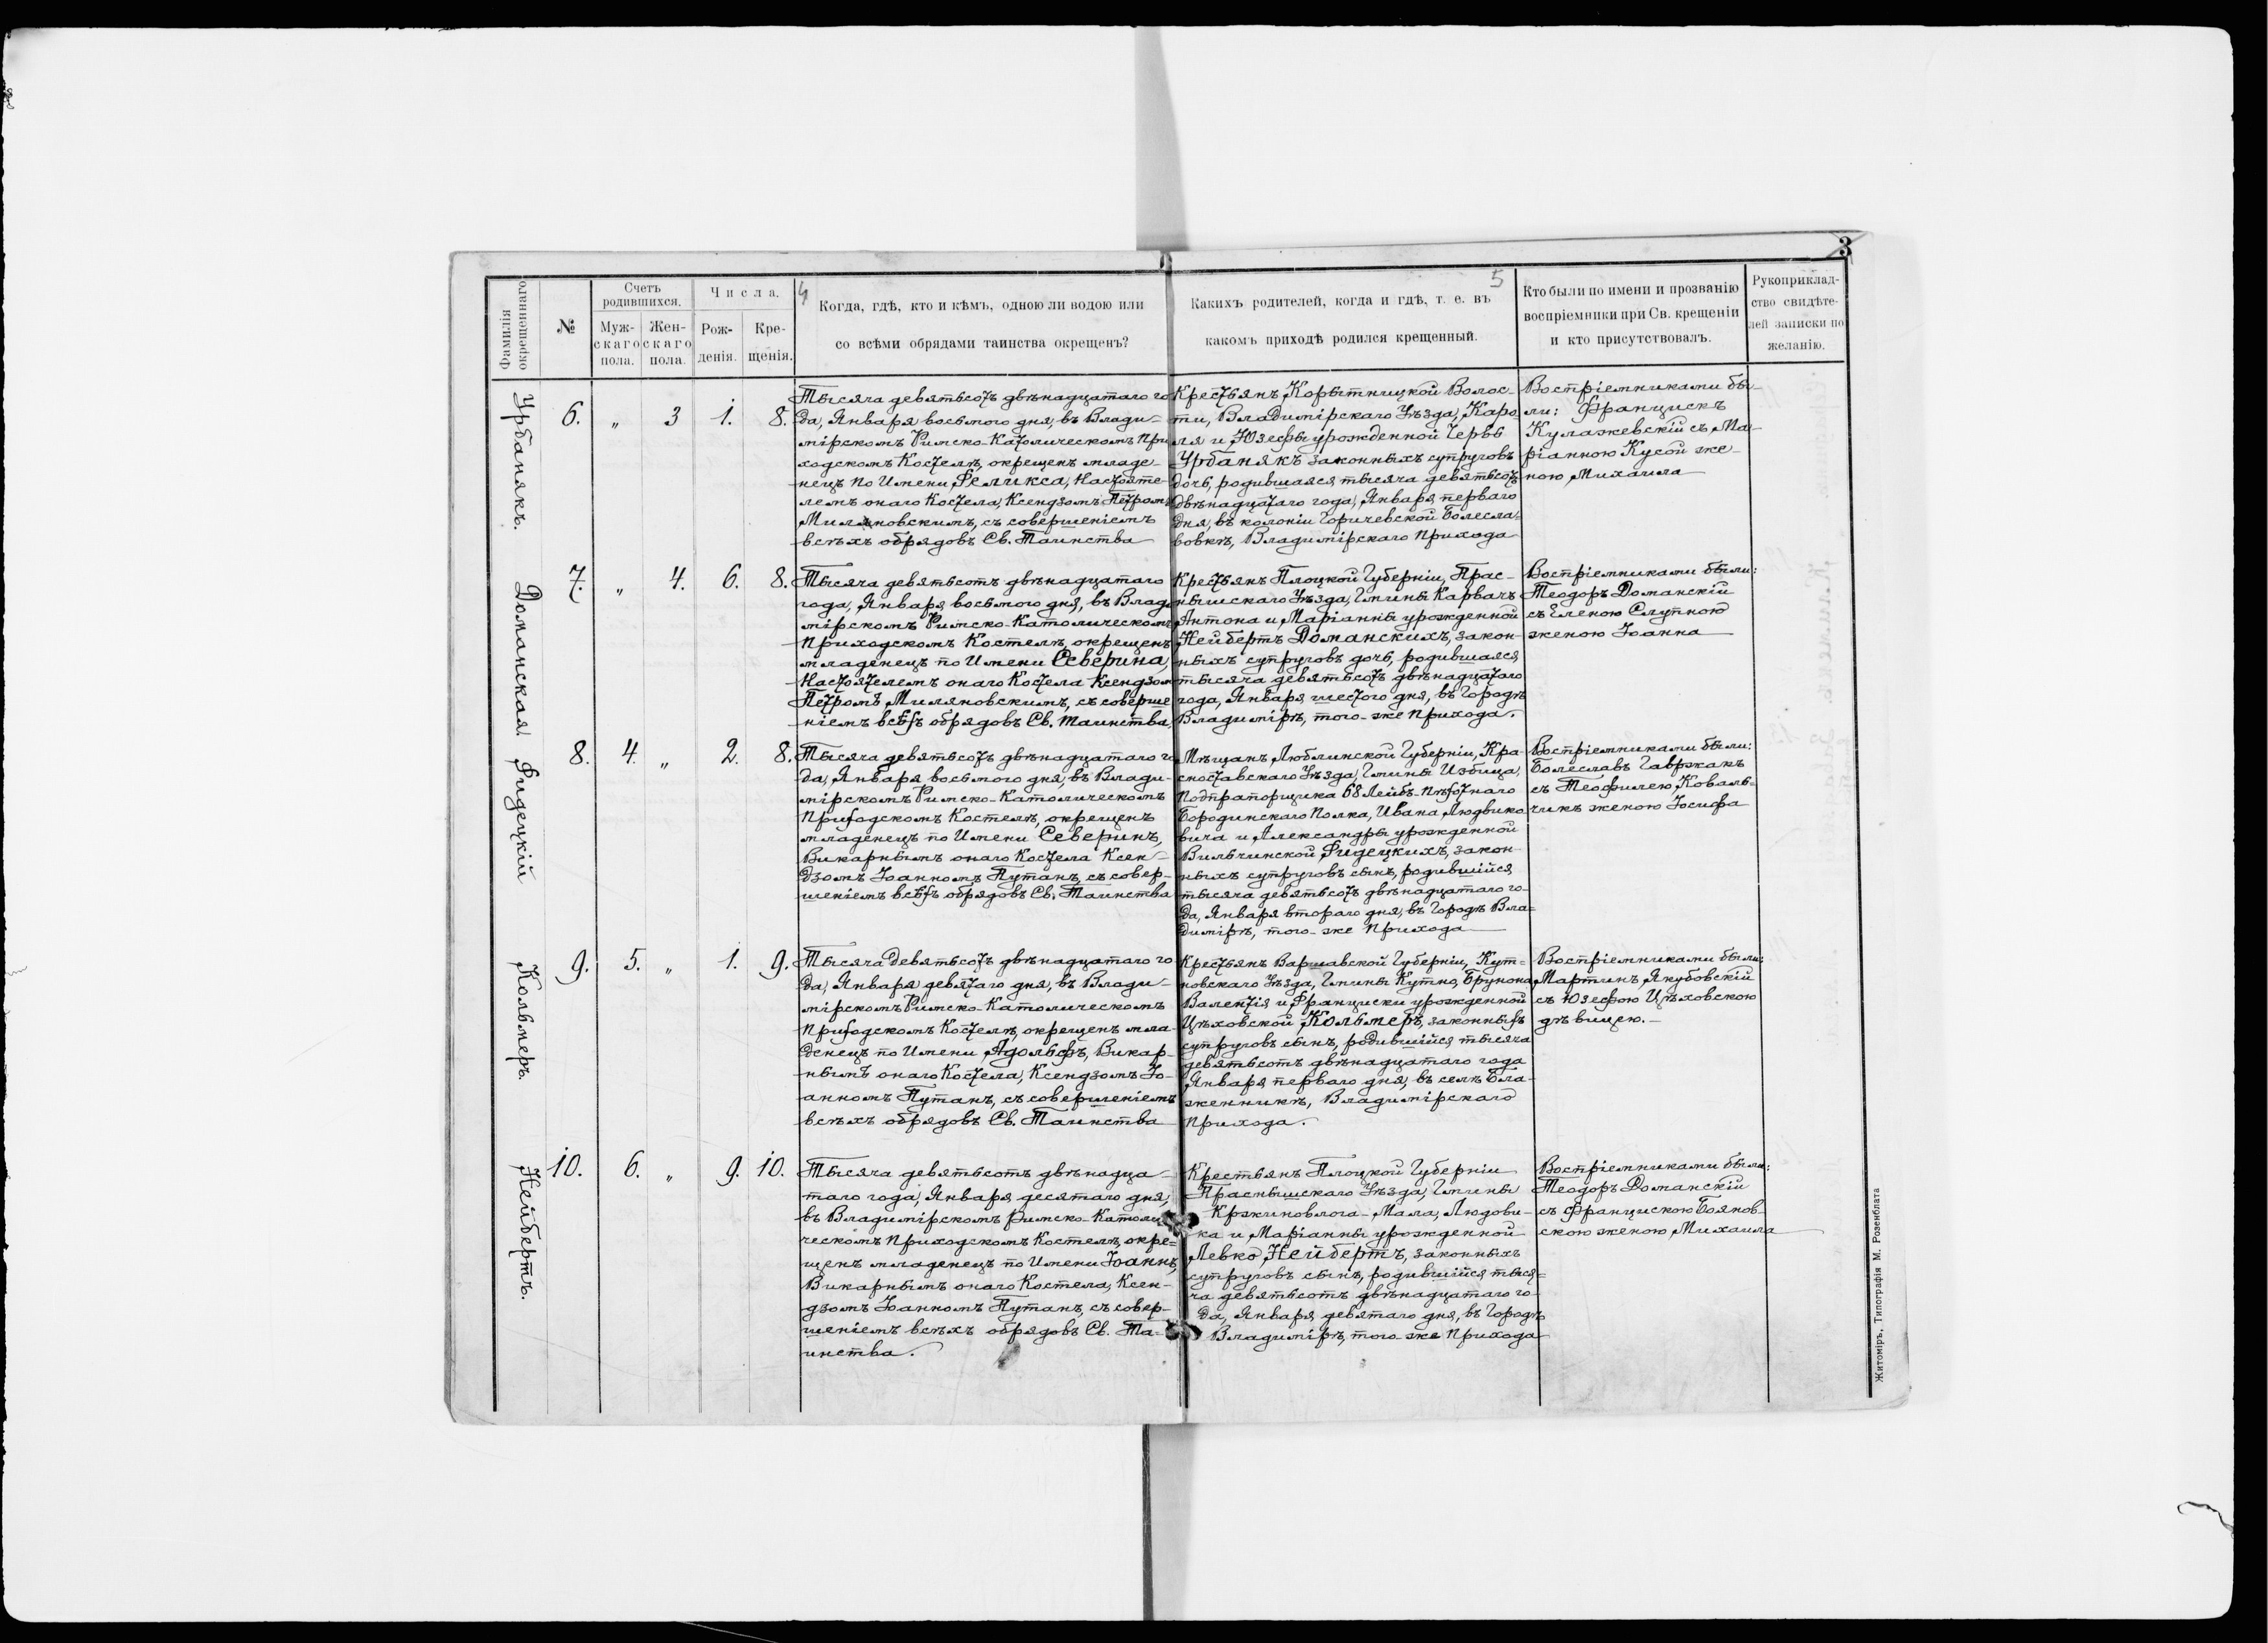 3
4
5
Фамилія
окрещеннаго
№
Счетъ
родившихся.
Муж-
скаго
пола.
Жен-
скаго
пола.
Числа.
Рож-
денія.
Кре-
щенія.
Когда, гдѣ, кто и кѣмъ, одною ли водою или
со всѣми обрядами таинства окрещенъ?
Какихъ родителей, когда и гдѣ, т. е. въ
какомъ приходѣ родился крещенный.
Кто были по имени и прозванію
воспріемники при Св. крещеніи
и кто присутствовалъ.
Рукоприклад-
ство свидѣте-
лей записки по
желанію.
Урбанякъ.
6. „ 3 1. 8.
Тысяча девятьсотъ двѣнадцатаго го
да, Января восьмого дня, въ Влади-
мірскомъ Римско-Католическомъ При
ходскомъ Костелѣ, окрещенъ младе-
нецъ по Имени Феликса, Настояте-
лемъ онаго Костела, Ксендзомъ Петромъ
Миляновскимъ, съ совершеніемъ
всѣхъ обрядовъ Св. Таинства
Крестьянъ Корытницкой Волос-
ти, Владимірскаго Уѣзда, Каро
ля и Юзефы урожденной Червы
Урбанякъ законныхъ супруговъ
дочь, родившаяся тысяча девятьсотъ
двѣнадцатаго года, Января перваго
дня, въ колоніи Горичевской Болесла-
вовкѣ, Владимірскаго Прихода
Востріемниками бы-
ли: Францискъ
Кулажевскій съ Ма-
ріанною Кусой же-
ною Михаила
Доманская
7. „ 4. 6. 8.
Тысяча девятьсотъ двѣнадцатаго
года, Января восьмого дня, въ Влади
мірскомъ Римско-Католическомъ
Приходскомъ Костелѣ, окрещенъ
младенецъ по Имени Северина,
Настоятелемъ онаго Костела Ксендзомъ
Петромъ Миляновскимъ, съ соверше
ніемъ всѣхъ обрядовъ Св. таинства,
Крестьянъ Плоцкой Губерніи, Прас-
нышскаго Уѣзда, Гмины Карвачъ
Антона и Маріанны урожденной
Нейбертъ Доманскихъ, закон-
ныхъ супруговъ дочь, родившаяся
тысяча девятьсотъ двѣнадцатаго
года, Января шестого дня, въ городѣ
Владимірѣ, того-же Прихода.
Востріемниками были:
Теодоръ Доманскій
съ Еленою Слупною
женою Іоанна
Фидецкій
8. 4. „ 2. 8.
Тысяча девятьсотъ двѣнадцатаго го
да, Января восьмого дня, въ Влади-
мірскомъ Римско-Католическомъ
Приходскомъ Костелѣ, окрещенъ
младенецъ по Имени Северинъ,
Викарнымъ онаго Костела Ксен-
дзомъ Іоанномъ Путанъ, съ совер-
шеніемъ всѣхъ обрядовъ Св. Таинства
Мѣщанъ Люблинской Губерніи, Кра-
сноставскаго Уѣзда, Гмины Избица,
Подпрапорщика 68 Лейбъ-Пѣхотнаго
Бородинскаго Полка, Ивана Людвико
вича и Александры урожденной
Вильчинской Фидецкихъ, закон-
ныхъ супруговъ сынъ, родившійся
тысяча девятьсотъ двѣнадцатаго го-
да, Января второго дня, въ Городѣ Вла-
димірѣ, того-же Прихода
Востріемниками были:
Болеславъ Гавржакъ
съ Теофилею Коваль-
чикъ женою Іосифа
Кольмеръ.
9. 5. „ 1. 9.
Тысяча девятьсотъ двѣнадцатаго го
да, Января девятаго дня, въ Влади-
мірскомъ Римско-Католическомъ
Приходскомъ Костелѣ, окрещенъ мла-
денецъ по Имени Адольфъ, Викар-
нымъ онаго Костела, Ксендзомъ Іо-
анномъ Путанъ, съ совершеніемъ
всѣхъ обрядовъ Св. Таинства
Крестьянъ Варшавской Губерніи, Кут-
новскаго Уѣзда, Гмины Кутно, Брунона
Валентія и Франциски урожденной
Цѣховской Кольмеръ, законныхъ
супруговъ сынъ, родившійся тысяча
девятьсотъ двѣнадцатаго года
Января перваго дня, въ селѣ Бла-
женникѣ, Владимірскаго
Прихода.
Востріемниками были:
Мартинъ Якубовскій
съ Юзефою Цѣховскою
дѣвицею.-
Нейбертъ.
10. 6. „ 9. 10.
Тысяча девятьсотъ двѣнадца-
таго года, Января десятаго дня,
въ Владимірскомъ Римско-Католи
ческомъ Приходскомъ Костелѣ, окре-
щенъ младенецъ по Имени Іоаннъ,
Викарнымъ онаго Костела, Ксен-
дзомъ Іоанномъ Путанъ, съ совер-
шеніемъ всѣхъ обрядовъ Св. Та-
инства.
Крестьянъ Плоцкой Губерніи
Праснышскаго Уѣзда, Гмины
Кржиновлога-Мала, Людови-
ка и Маріанны урожденной
Левко Нейбертъ, законныхъ
супруговъ сынъ, родившійся тыся-
ча девятьсотъ двѣнадцатаго го-
да, Января девятаго дня, въ городѣ
Владимірѣ, того-же Прихода
Востріемниками были:
Теодоръ Доманскій
съ Францискою Боянов-
скою женою Михаила
Житоміръ, Типографія М. Розенблата